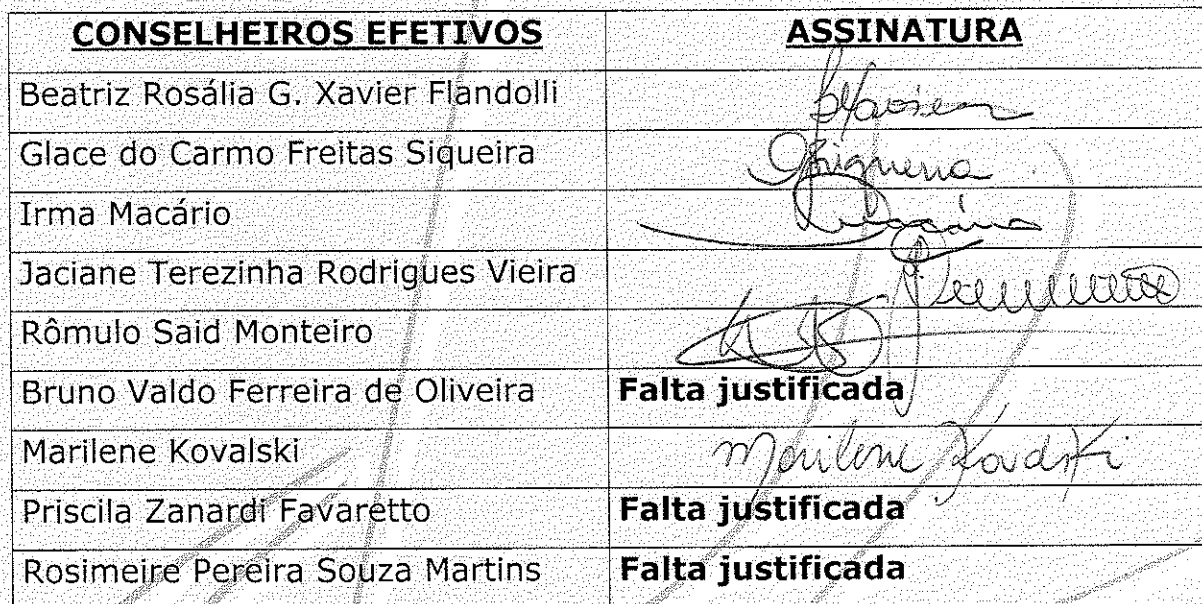 CONSELHEIROS EFETIVOS ASSINATURA
Beatriz Rosália G. Xavier Flandolli
Glace do Carmo Freitas Siqueira
Irma Macário
Jaciane Terezinha Rodrigues Vieira
Rômulo Said Monteiro
Bruno Valdo Ferreira de Oliveira Falta justificada
Marilene Kovalski Marilene Kovalski
Priscila Zanardi Favaretto Falta justificada
Rosimeire Pereira Souza Martins Falta justificada